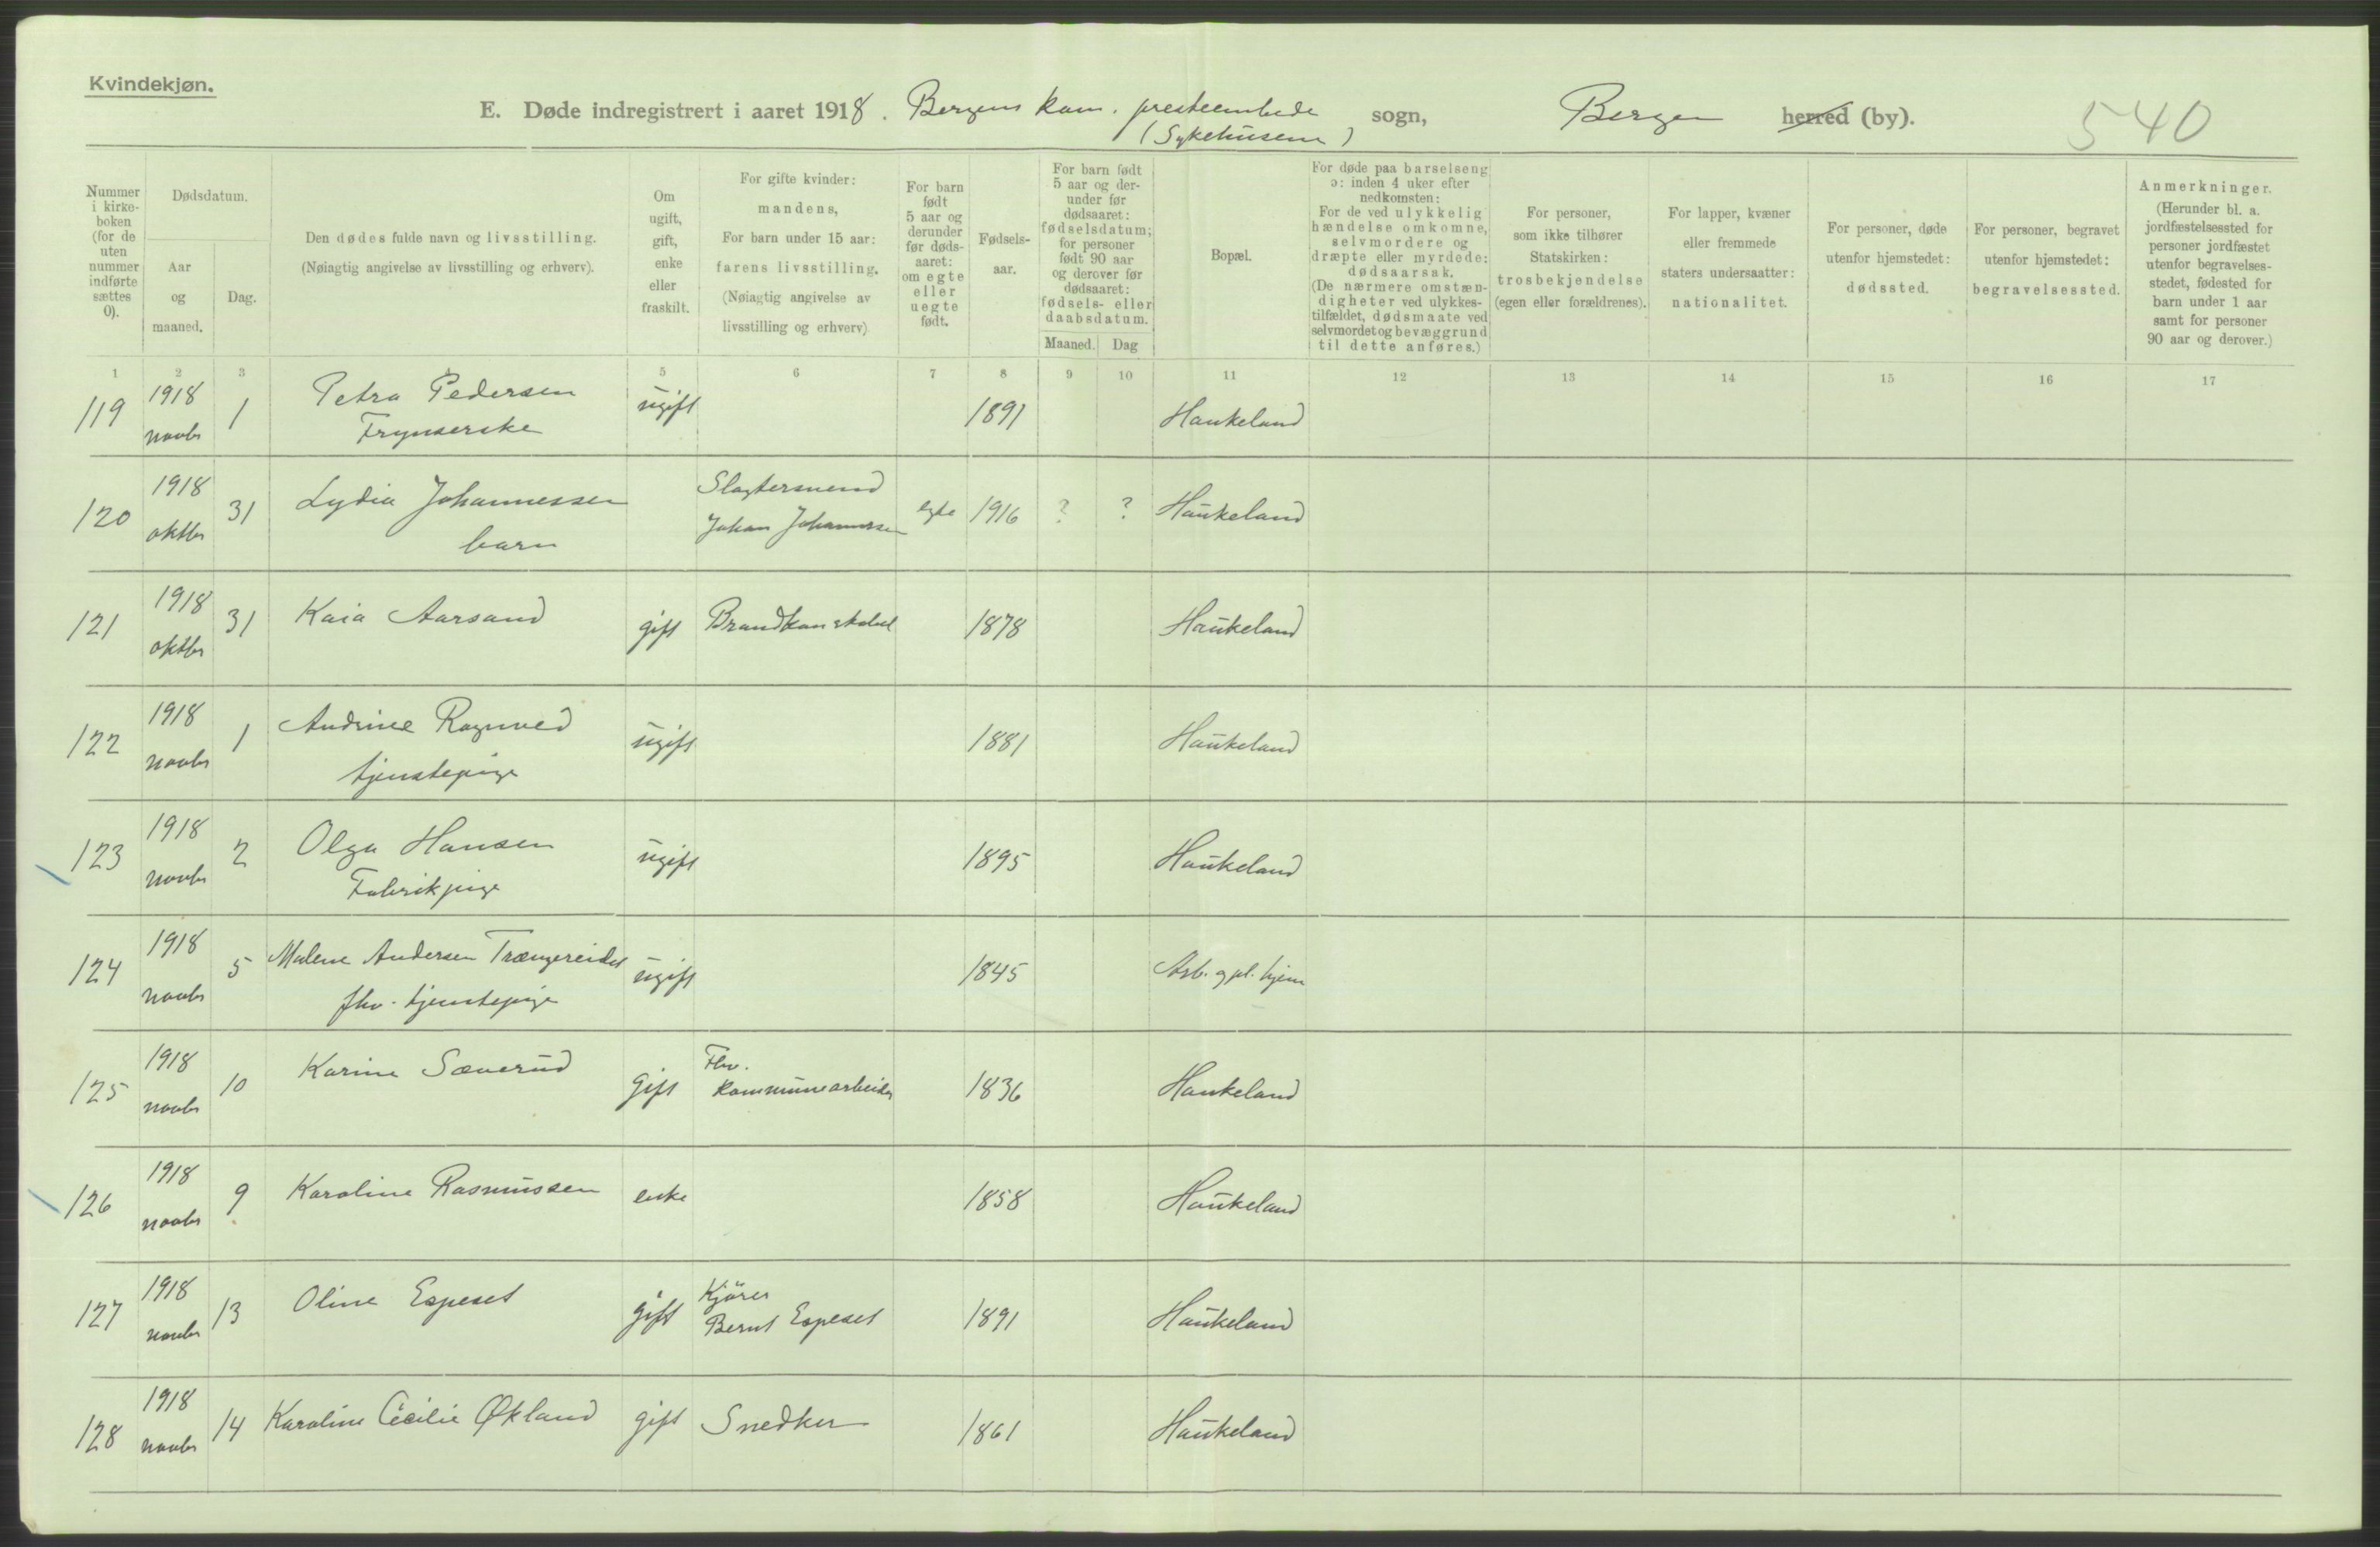 Kvindekjøn.
E. Døde indregistrert i aaret 1918. Bergens kom. presteembede sogn, Bergen herred (by). 540
(Sykehusene)
Nummer i kirkeboken (for de uten nummer indførte sættes 0).
Dødsdatum.
Aar og maaned.
Dag.
Den dødes fulde navn og livsstilling.
(Nøiagtig angivelse av livsstilling og erhverv).
Om ugift, gift, enke eller fraskilt.
For gifte kvinder: mandens,
For barn under 15 aar: farens livsstilling.
(Nøiagtig angivelse av livsstilling og erhverv).
For barn født 5 aar og derunder før dødsaaret: om egte eller uegte født.
Fødselsaar.
For barn født 5 aar og derunder før dødsaaret: fødselsdatum; for personer født 90 aar og derover før dødsaaret: fødsels- eller daabsdatum.
Maaned. Dag
Bopæl.
For døde paa barselseng ɔ: inden 4 uker efter nedkomsten:
For de ved ulykkelig hændelse omkomne, selvmordere og dræpte eller myrdede: dødsaarsak.
(De nærmere omstændigheter ved ulykkestilfældet, dødsmaate ved selvmordet og bevæggrund til dette anføres.)
For personer, som ikke tilhører Statskirken: trosbekjendelse (egen eller forældrenes).
For lapper, kvæner eller fremmede staters undersaatter: nationalitet.
For personer, døde utenfor hjemstedet: dødssted.
For personer, begravet utenfor hjemstedet: begravelsessted.
Anmerkninger.
(Herunder bl. a. jordfæstelsessted for personer jordfæstet utenfor begravelsesstedet, fødested for barn under 1 aar samt for personer 90 aar og derover.)
1 2 3 4 5 6 7 8 9 10 11 12 13 14 15 16 17
119 1918 novbr 1 Petra Pedersen ugift 1891 Haukeland
Frynserske
120 1918 oktbr 31 Lydia Johannessen Slagtersvend egte 1916 ? ? Haukeland
barn Johan Johannessen
121 1918 oktbr 31 Kaia Aarsand gift Brandkonstabel 1878 Haukeland
122 1918 novbr 1 Andrine Ragnved ugift 1881 Haukeland
tjenstepige
123 1918 novbr 2 Olga Hansen ugift 1895 Haukeland
Fabrikpige
124 1918 novbr 5 Malene Andersen Trængereidet ugift 1845 Arb. og pl. hjem
fhv. tjenstepige
125 1918 novbr 10 Karine Sæverud gift Fhv. kommunearbeider 1836 Haukeland
126 1918 novbr 9 Karoline Rasmussen enke 1858 Haukeland
127 1918 novbr 13 Oline Espeset gift Kjører 1891 Haukeland
Bernt Espeset
128 1918 novbr 14 Karoline Cecilie Økland gift Snedker 1861 Haukeland